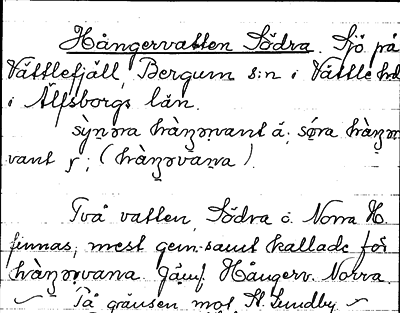 Hångervatten Södra. Sjö på
Vättlefjäll, Bergum s:n i Vättle hd
i Älfsborgs län.
sỳnəra hàŋərvant ä; sǿra hàŋər
vant ɼ; (hàŋərvana).
Två vatten, Södra o. Norra H
finnas, mest gem. samt kallade för
hàŋərvana. Jämf. Hångerv. Norra.
På gränsen mot St. Lundby